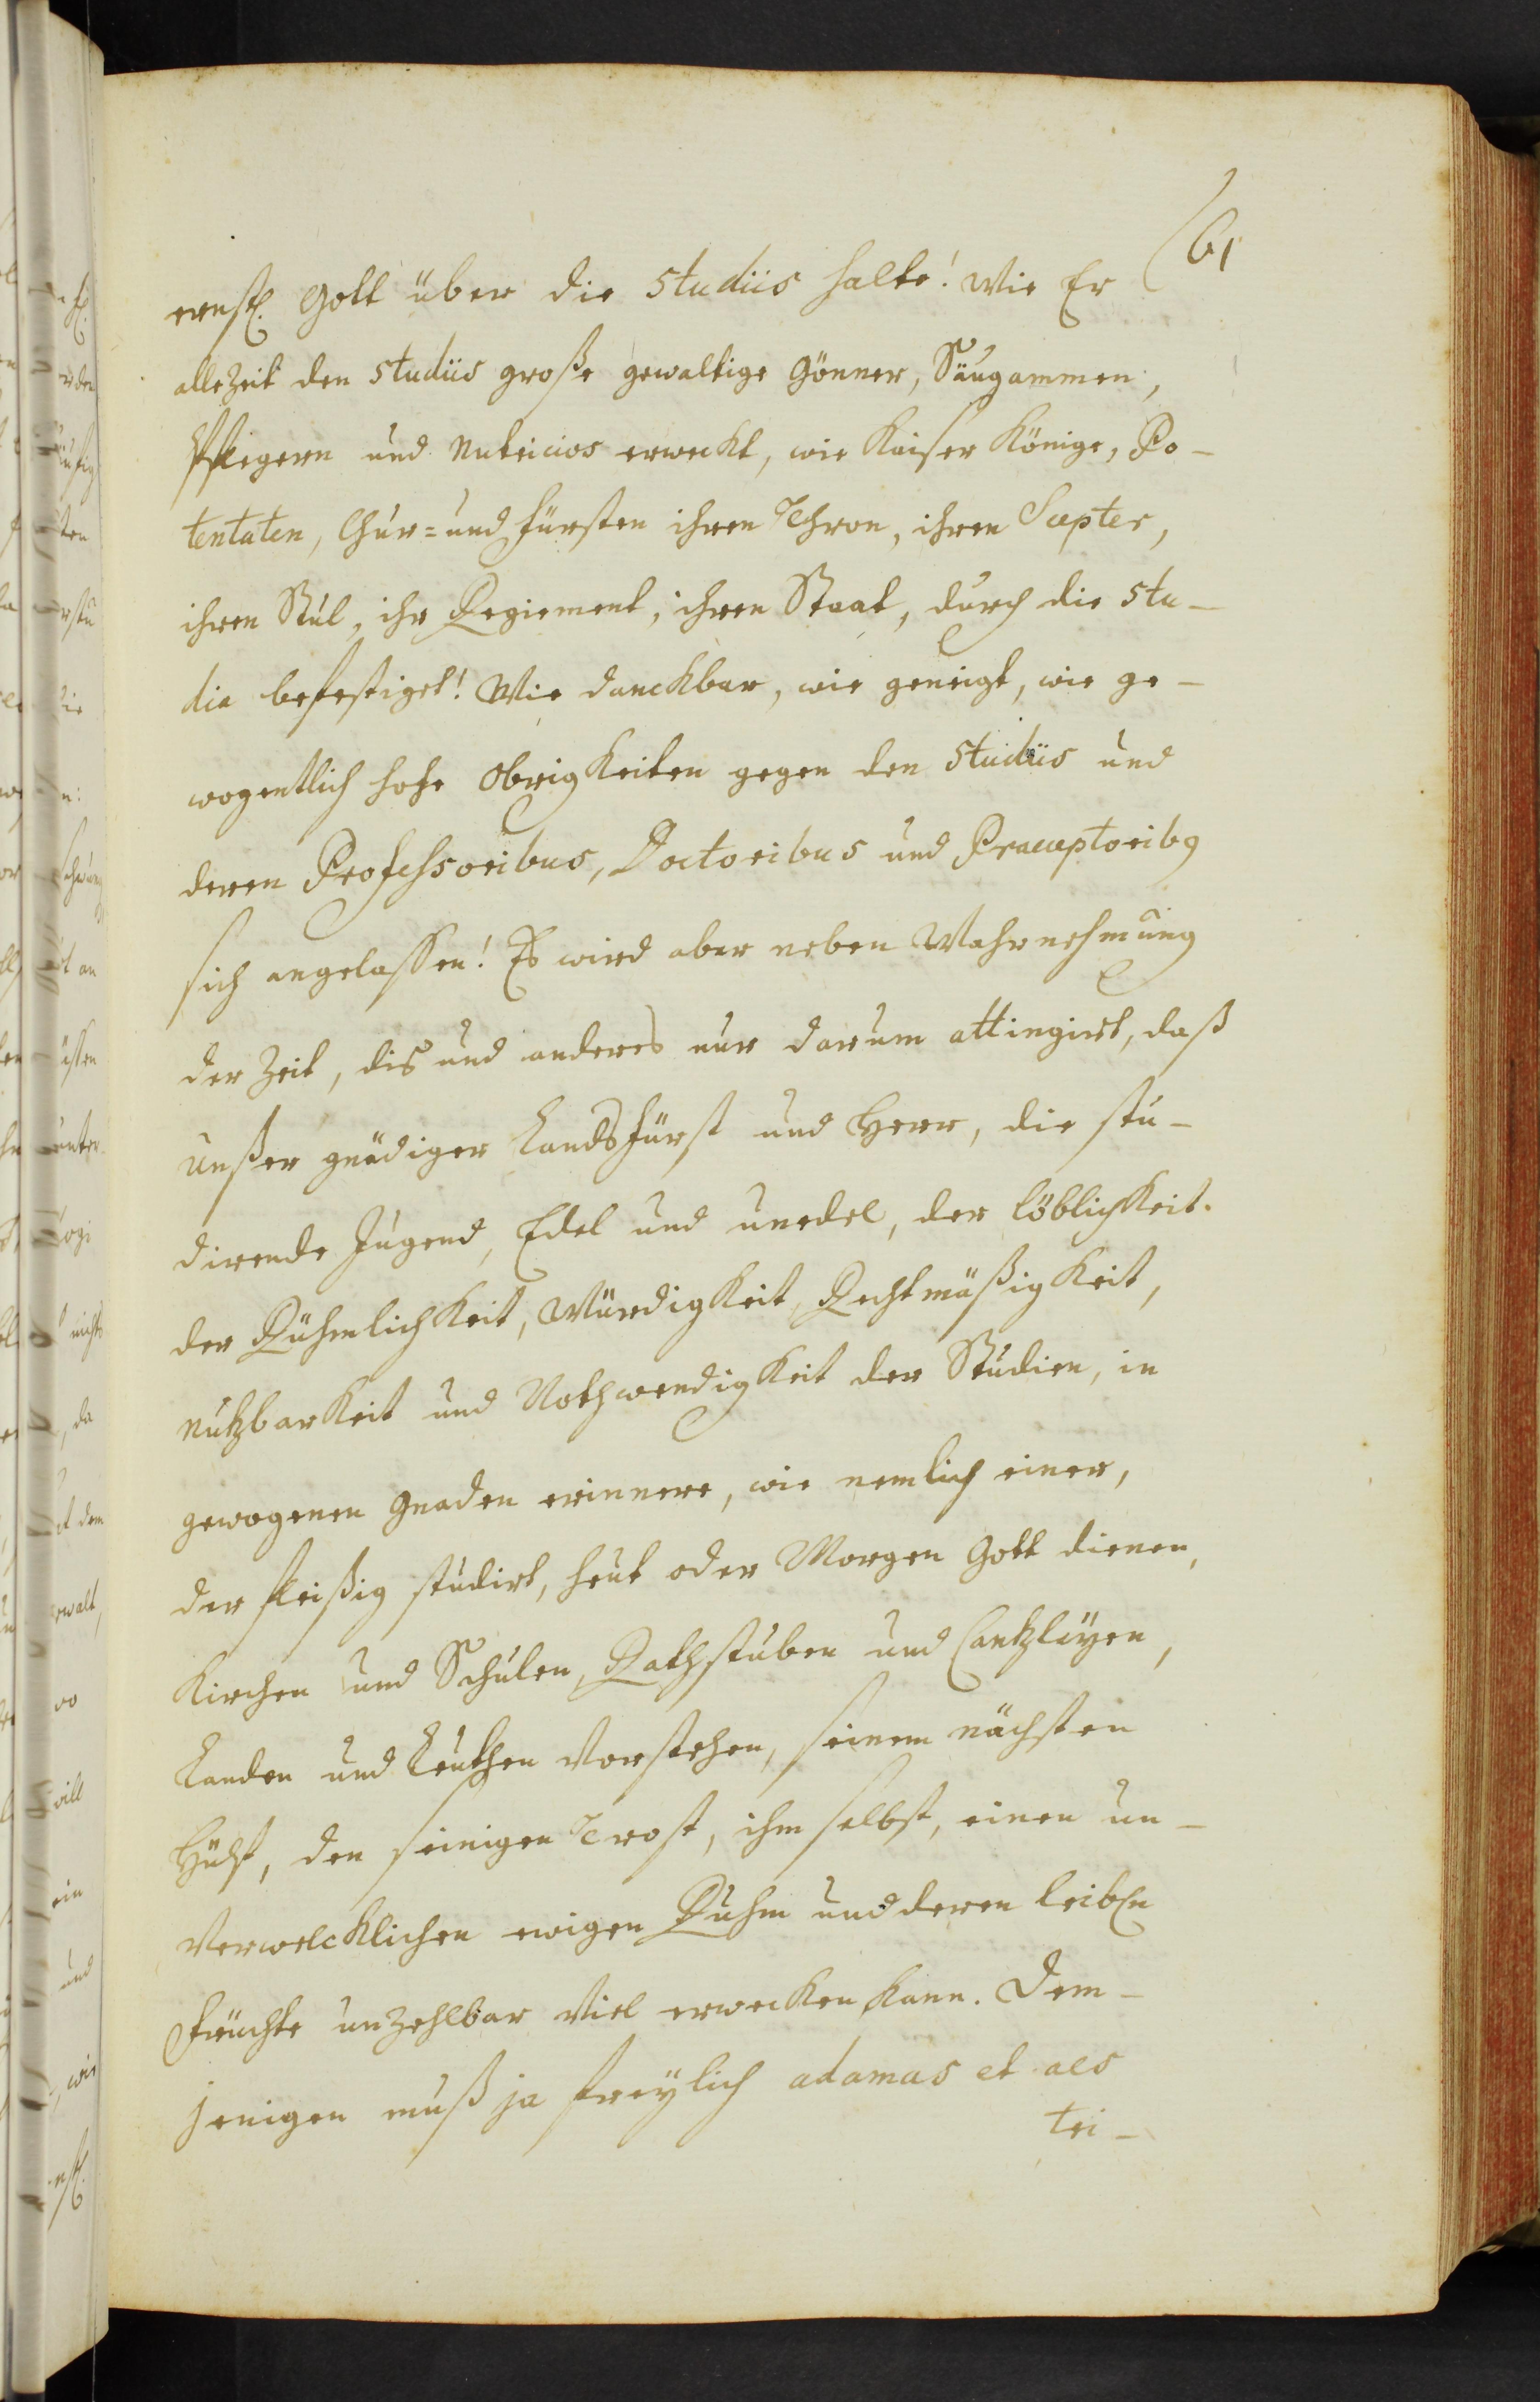 61
ernstl. Gott über die Studiis halte! Wie Er
allezeit den Studiis große gewaltige Gönner, Säugammen,
Pflegern und Nutricios erweckt, wie Kaiser Könige, Po-
tentaten, Chur= und Fürsten ihren Thron, ihren Scepter,
ihren Stul, ihr Regiement, ihren Staat, durch die Stu-
dia befestiget! Wie danckbar, wie geneigt, wie ge-
wogentlich hohe Obrigkeiten gegen den Studiis und
deren Professoribus, Doctoribus und Praeceptoribq
sich angelaßen! Es wird aber neben Wahrnehmung
der Zeit, dis und anderes nur darum attingirt, daß
unßer gnädiger Landsfürst und Herr, die stu-
dirende Jugend, Edel und unedel, der löblichkeit.
der Rühmlichkeit, Würdigkeit, Rechtmäßigkeit,
Nutzbarkeit und Nothwendigkeit der Studien, in
gewogenen Gnaden erinnere, wie nemlich einer,
der fleißig studirt, heut oder Morgen Gott dienen,
Kirchen und Schulen, Rathstuben und Cantzleyen,
Landen und Leuthen vorstehen, seinem nächsten
Hülf, den seinigen Trost, ihm selbst, einen un-
verwelcklichen ewigen Ruhm und deren leibEn
früchte unzehlbar viel erwecken kann. Dem-
jenigen muß ja freylich adamas et aes
tri-